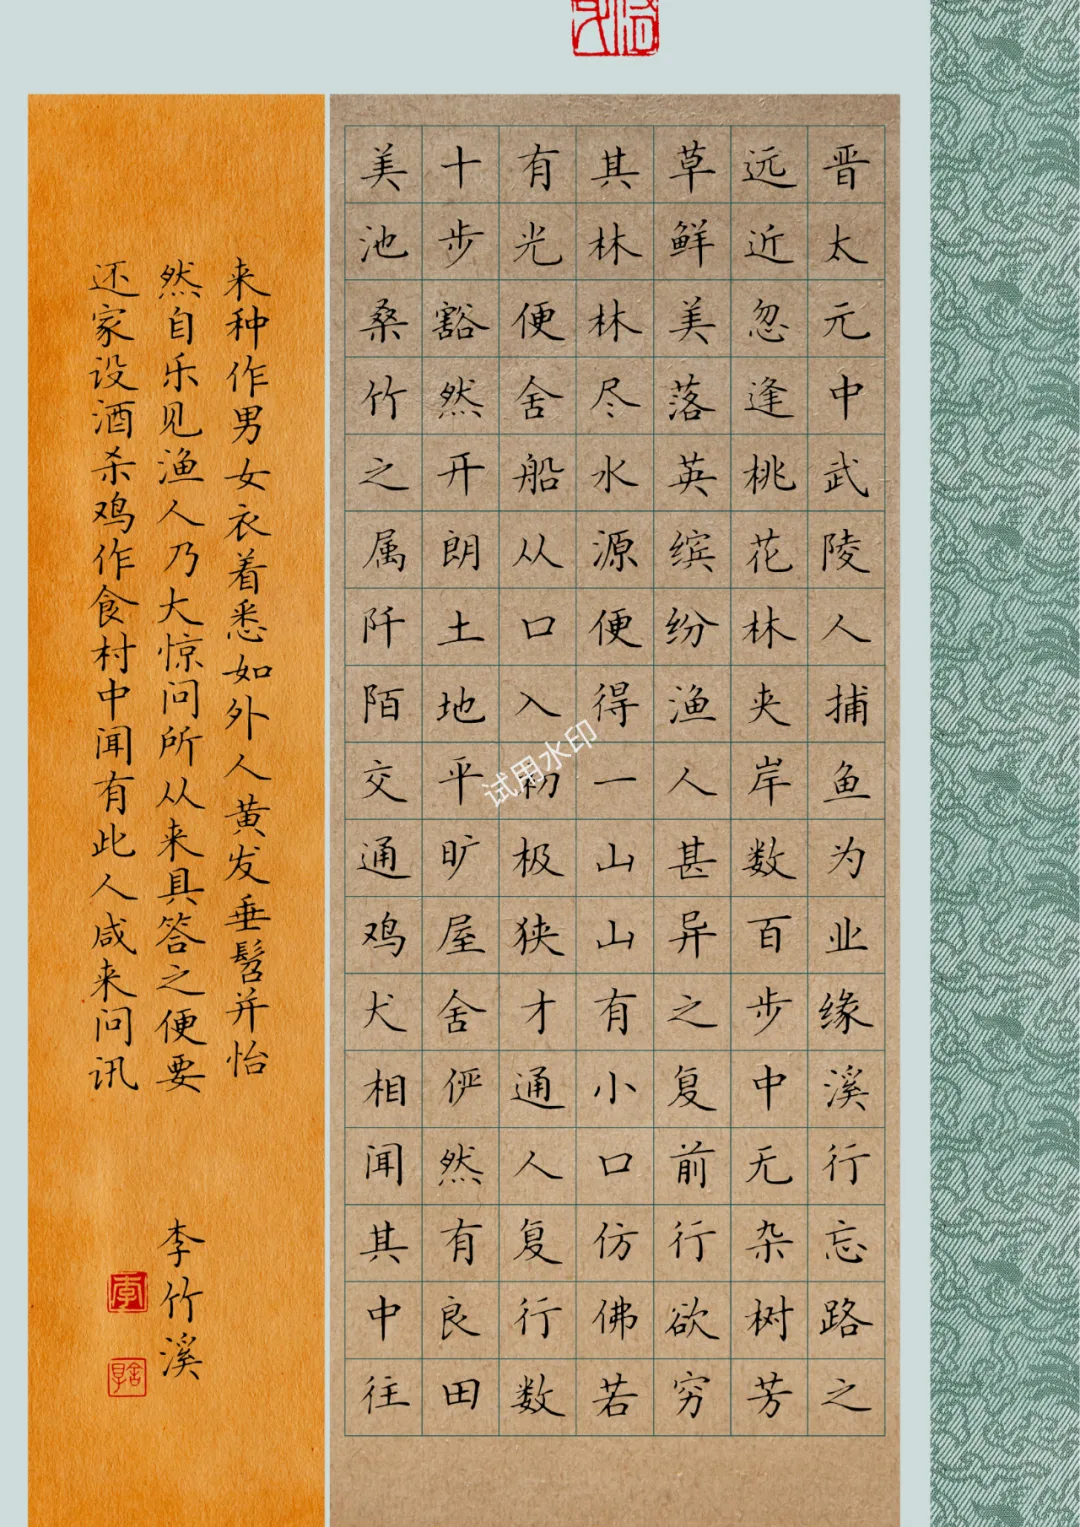 晋太元中武陵人捕鱼为业缘溪行忘路之
远近忽逢桃花林夹岸数百步中无杂树芳
草鲜美落英缤纷渔人甚异之复前行欲穷
其林林尽水源便得一山山有小口仿佛若
有光便舍船从口入初极狭才通人复行数
十步豁然开朗土地平旷屋舍俨然有良田
美池桑竹之属阡陌交通鸡犬相闻其中往
来种作男女衣着悉如外人黄发垂髫并怡
然自乐见渔人乃大惊问所从来具答之便要
还家设酒杀鸡作食村中闻有此人咸来问讯
李竹溪
李
试用水印